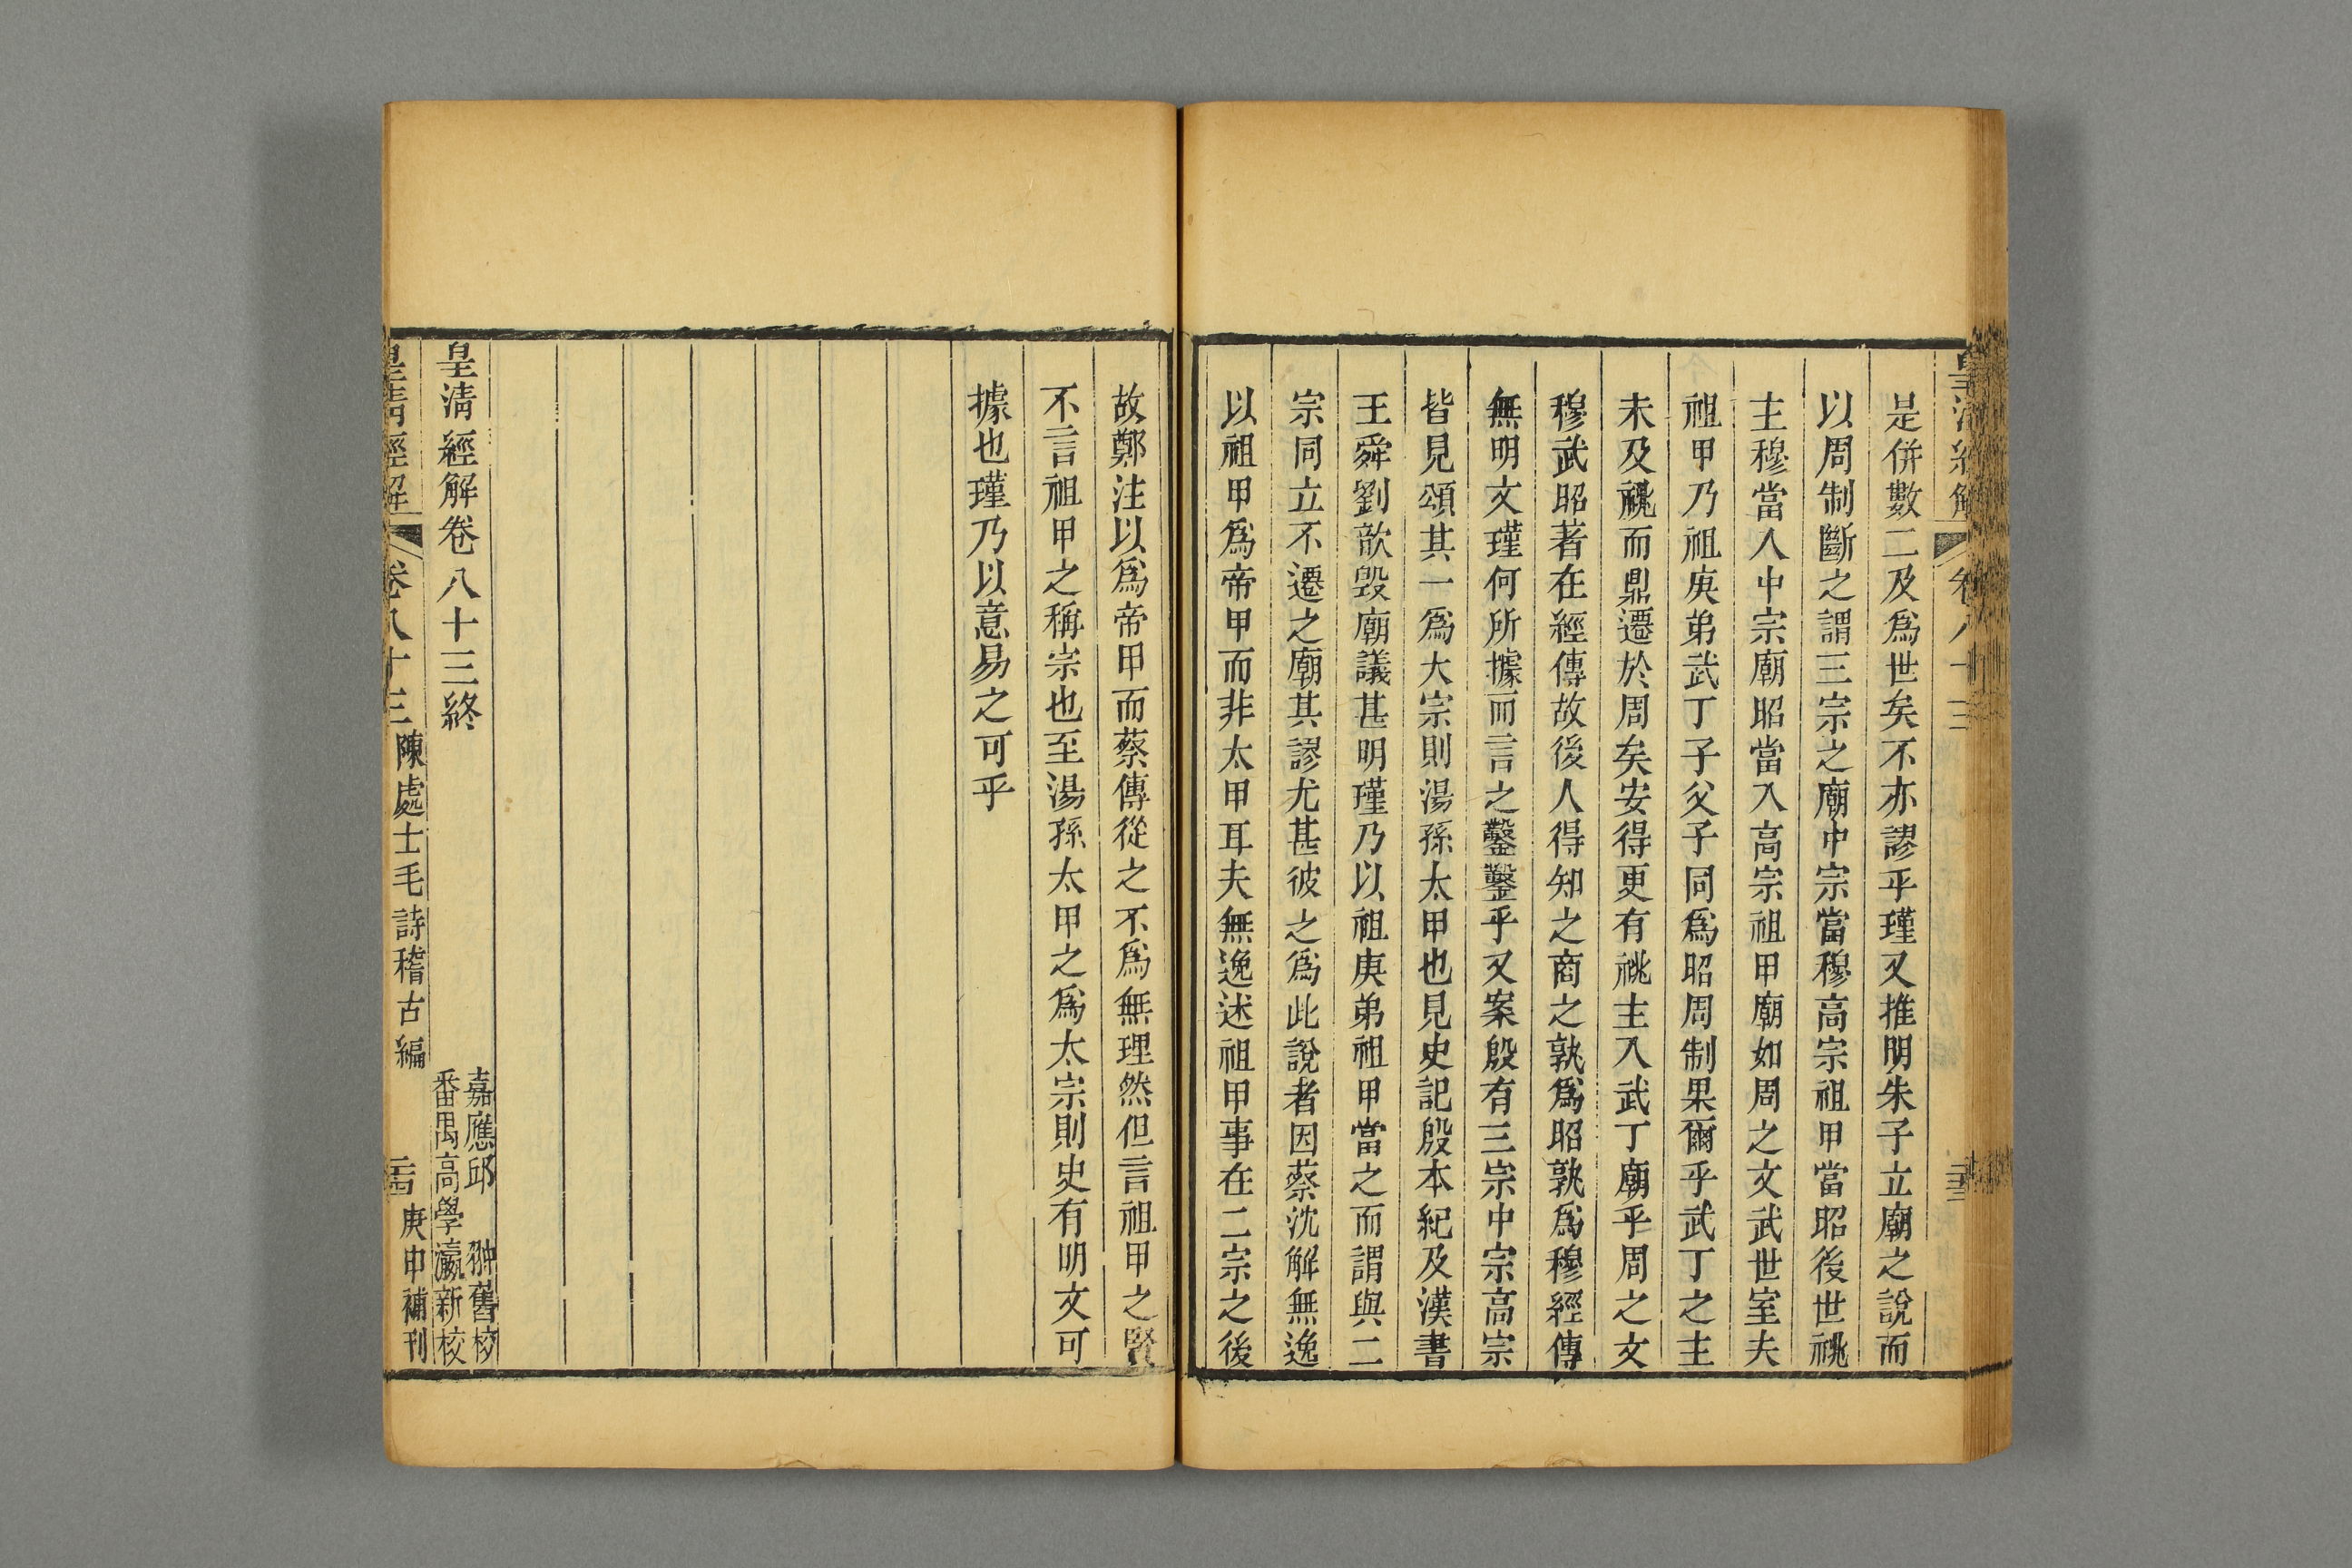 皇清經解 卷八十三 三十三
是併數二及爲世矣不亦謬乎瑾又推明朱子立廟之說而
以周制斷之謂三宗之廟中宗當穆高宗祖甲當昭後世祧
主穆當入中宗廟昭當入高宗祖甲廟如周之文武世室夫
祖甲乃祖庚弟武丁子父子同爲昭周制果爾乎武丁之主
未及祧而鼎遷於周矣安得更有祧主入武丁廟乎周之文
穆武昭著在經傳故後人得知之商之孰爲昭孰爲穆經傳
無明文瑾何所據而言之鑿鑿乎又案殷有三宗中宗高宗
皆見頌其一爲大宗則湯孫太甲也見史記殷本紀及漢書
王舜劉歆毀廟議甚明瑾乃以祖庚弟祖甲當之而謂與二
宗同立不遷之廟其謬尤甚彼之爲此說者因蔡沈解無逸
以祖甲爲帝甲而非太甲耳夫無逸述祖甲事在二宗之後
故鄭注以爲帝甲而蔡傳從之不爲無理然但言祖甲之賢
不言祖甲之稱宗也至湯孫太甲之爲太宗則史有明文可
據也瑾乃以意易之可乎
皇清經解卷八十三終
嘉應邱翀舊校
番禺高學瀛新校
皇清經解 卷八十三 陳處士毛詩稽古編 三十四 庚申補刊